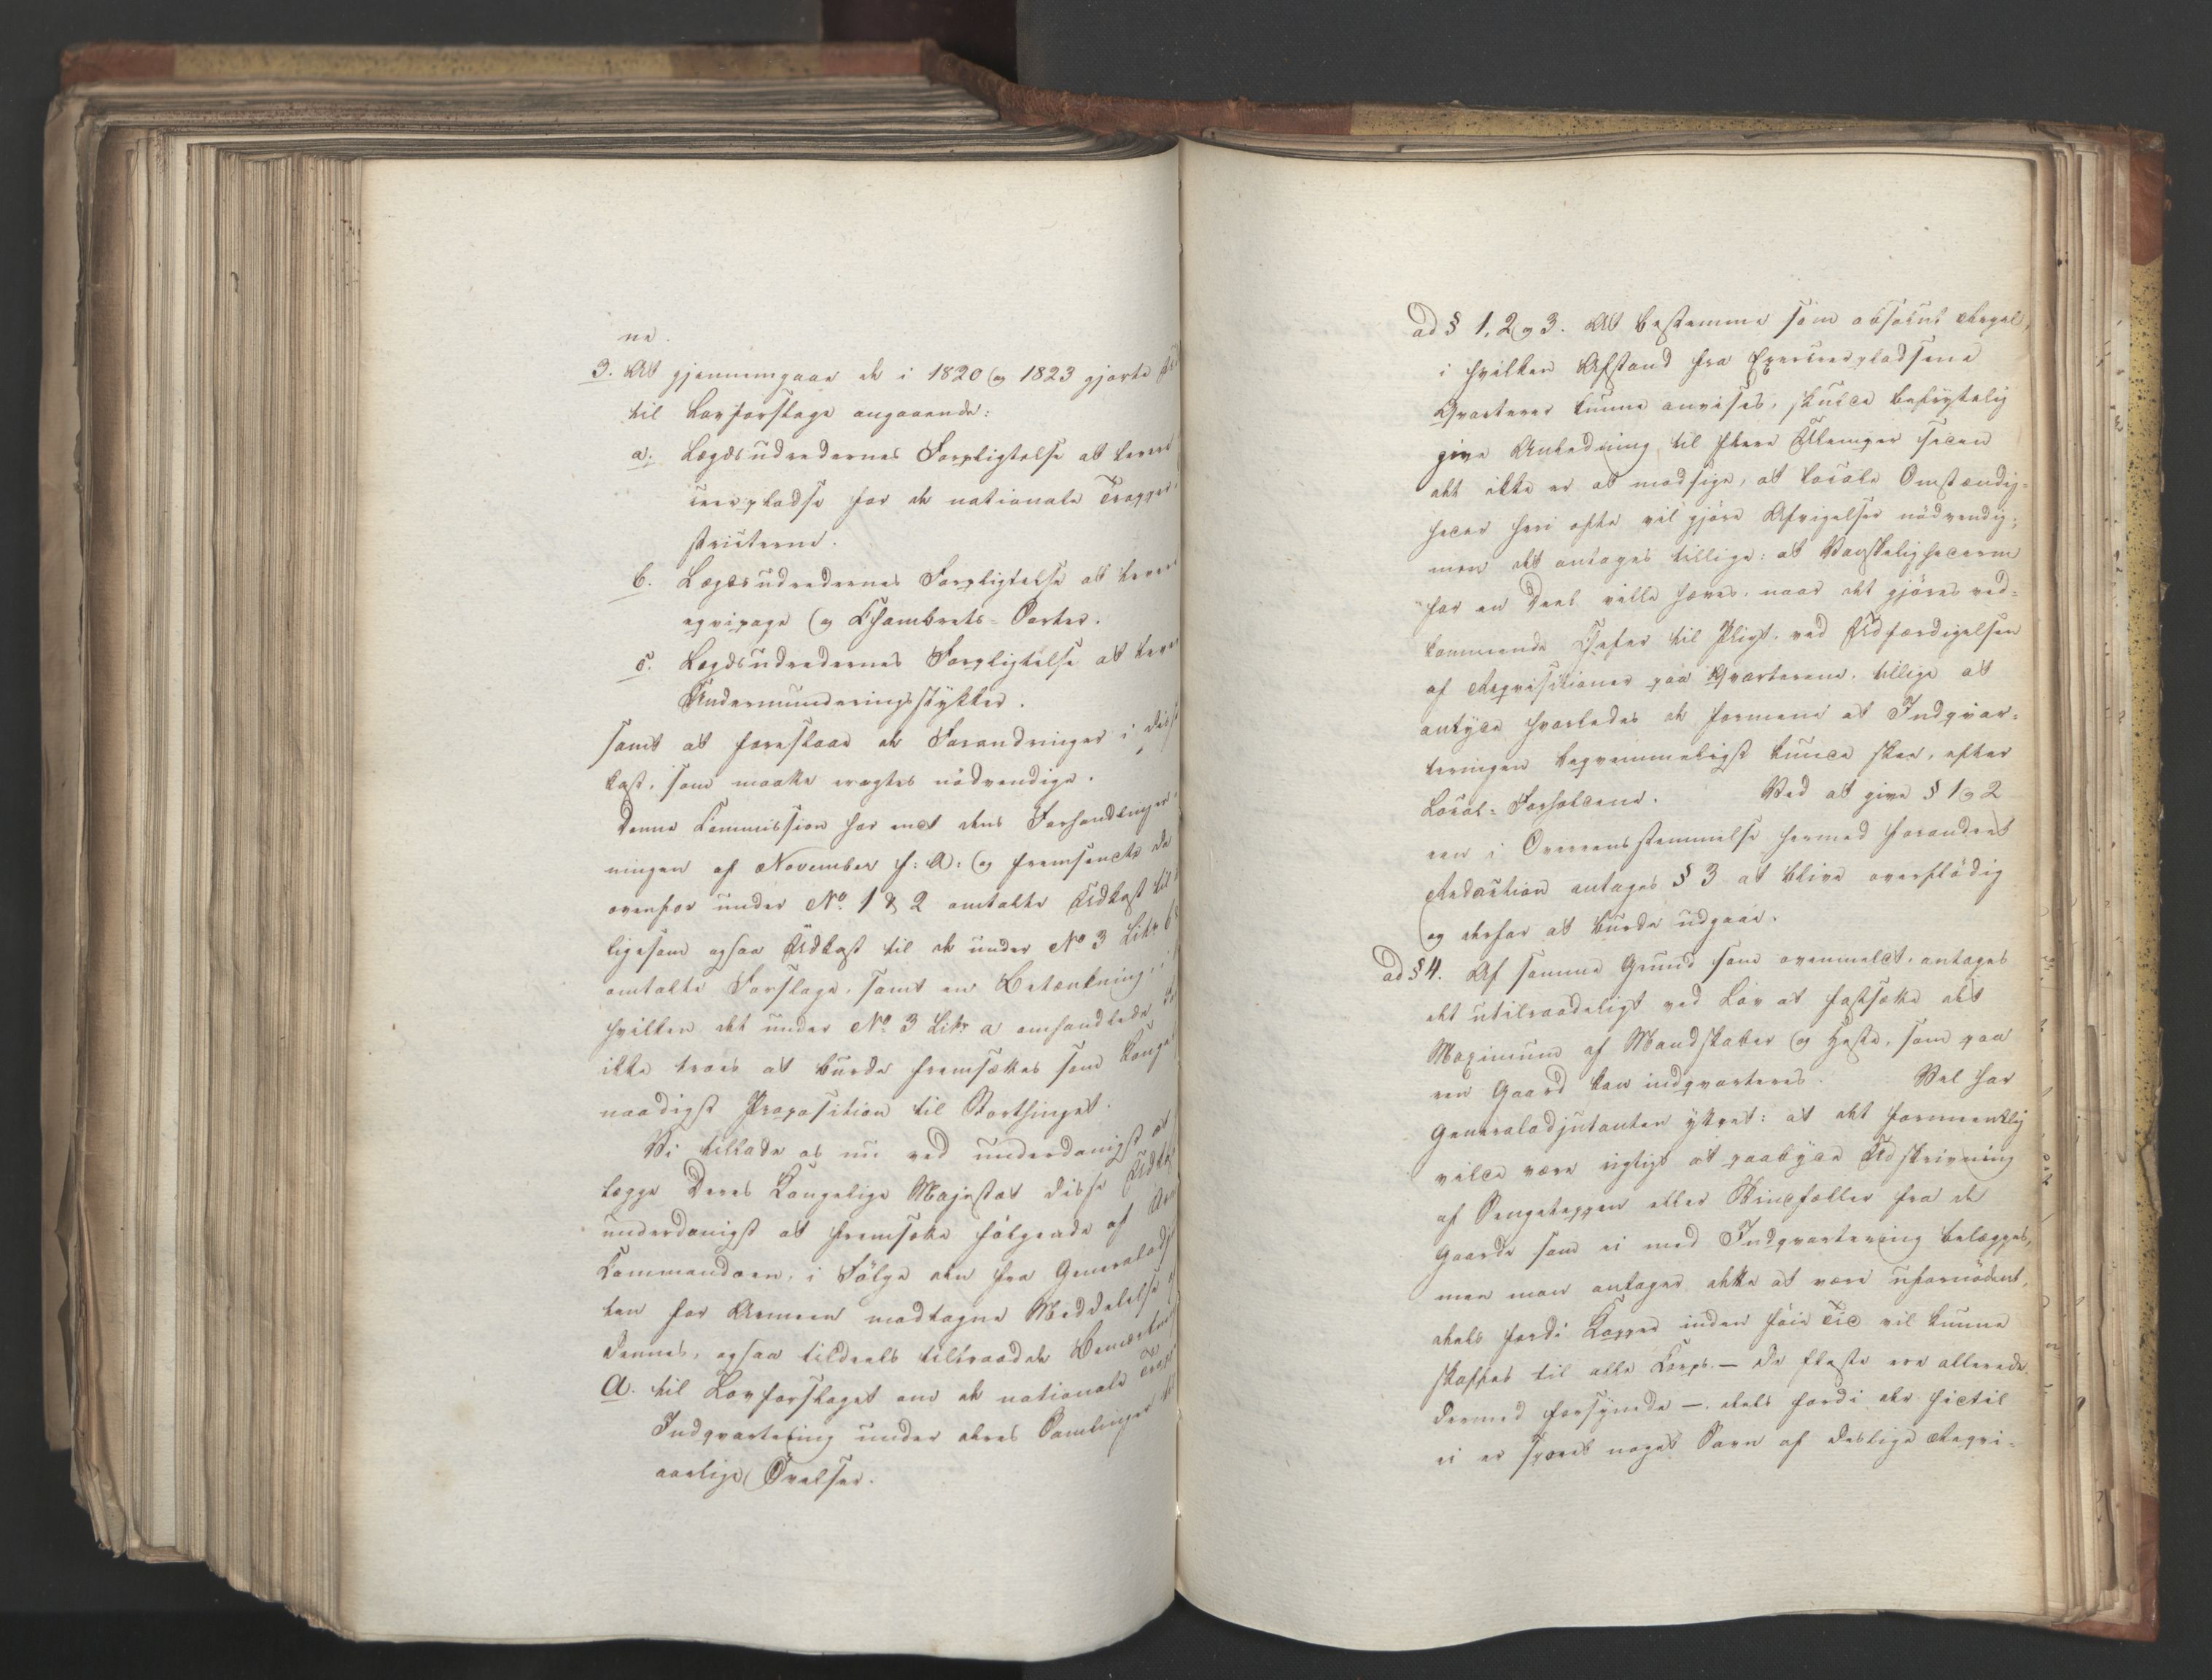 ne.
3. At gjennemgaae de i 1820 og 1823 gjorte
til Lovforslage angaaende:
a. Lægdsudredernes Forpligtelse at levere
cerpladse for de nationale Tropper
stricterne.
b. Lægdsudredernes Forpligtelse at levere
eqvipage og Chambrets-Sorter.
c. Lægdsudredernes Forpligtelse at levere
Undermunderingsstykker.
samt at foreslaae de Forandringer i disse
kast, som maatte eragtes nødvendige.
Denne Commission har endt dens Forhandlinger
ningen af November f: A: og fremsendte de
ovenfor under No. 1 & 2 omtalte Udkast til
ligesom ogsaa Udkast til de under No 3 Litr b
omtalte Forslage, samt en Betænkning, i
hvilken det under No 3 Litr a omhandlede
ikke troes at burde fremsættes som Konge
naadigst Proposition til Storthinget.
Vi tillade os nu ved underdanigst at
lægge Deres Kongelige Majestæt disse Udkast
underdanigst at fremsætte følgende af
Commandoen, i Følge den fra Generaladju
ten for Armeen modtagne Meddelelse
dennes, ogsaa tildeels tiltraadde Bemærkning
A. til Lovforslaget om de nationale Trop
Indqvartering under deres Samlinger til
aarlige Øvelser.
ad § 1, 2 og 3. At bestemme som absolut Regel,
i hvilken Afstand fra Exerceerpladsene
Qvarterer kunne anvises, skulde befrygtelig
give Anledning til flere Ulemper siden
det ikke er at modsige, at locale Omstændig-
heder heri ofte vil gjøre Afvigelser nødvendig;
men det antages tillige: at Vanskelighederne
for en Deel ville hæves, naar det gjøres ved-
kommende Chefer til Pligt, ved Udfærdigelsen
af Reqvisitioner paa Qvarterene, tillige at
antyde hvorledes de formene at Indqvar-
teringen beqvemmeligst kunde skee, efter
Local-Forholdene. Ved at give § 1 og 2
een i Overeensstemmelse hermed forandret
Redaction antages § 3 at blive overflødig
og derfor at burde udgaae.
ad § 4. Af samme Grund som ovenmeldt, antages
det utilraadeligt ved Lov at fastsætte det
Maximum af Mandskaber og Heste, som paa
een Gaard kan indqvarteres. Vel har
Generaladjutanten yttret: at det formeentlig
vilde være rigtigt at paabyde Udskrivning
af Sengetepper eller Skindfælder fra de
Gaarde som ei med Indqvartering belægges,
men man antager dette at være ufornødent,
deels fordi Kapper inden føie Tid vil kunne
skaffes til alle Corps – de fleste ere allerede
dermed forsynede –, deels fordi der hidtil
ei er sporet noget Savn af deslige Reqvi-